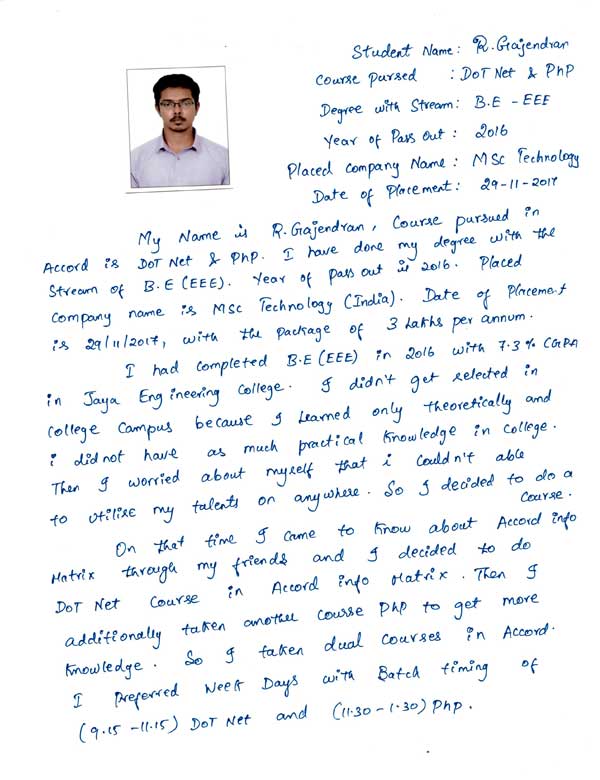 Student Name: R. Gajendran
Course pursed : DoT Net & PhP
Degree with Stream: B.E - EEE
Year of Pass Out : 2016
Placed Company Name : MSc Technology
Date of Placement: 29-11-2017
My Name is R. Gajendran, Course pursued in
Accord is DoT Net & PhP. I have done my degree with the
Stream of B.E (EEE). Year of pass out is 2016. Placed
company name is MSc Technology (India). Date of Placement
is 29/11/2017, with the package of 3 Lakhs per annum.
I had completed B.E (EEE) in 2016 with 7.3% CGPA
in Jaya Engineering College. I didn't get selected in
College Campus because I Learned only theoretically and
i did not have as much practical knowledge in college.
Then I worried about myself that i couldn't able
to utilise my talents on anywhere. So I decided to do a
Course.
On that time I came to know about Accord info
Matrix through my friends and I decided to do
DoT Net Course in Accord info Matrix. Then I
additionally taken another course PhP to get more
knowledge. So I taken dual courses in Accord.
I Preferred Week Days with Batch timing of
(9.15 -11.15) DoT Net and (11.30 -1.30) PhP.